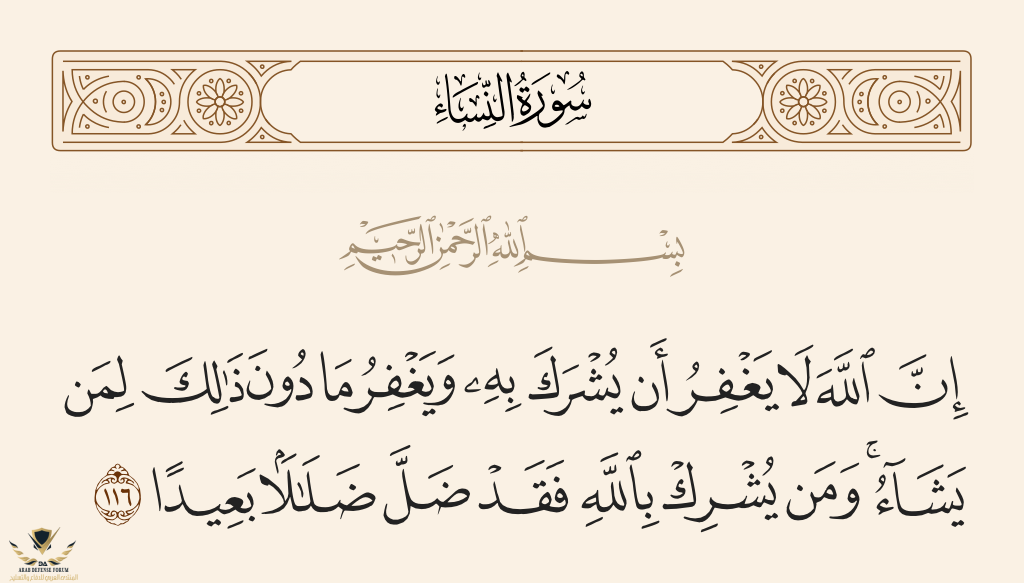 سُورَةُ النِّسَاءِ
بِسْمِ ٱللَّهِ ٱلرَّحْمَٰنِ ٱلرَّحِيمِ
إِنَّ ٱللَّهَ لَا يَغْفِرُ أَن يُشْرَكَ بِهِۦ وَيَغْفِرُ مَا دُونَ ذَٰلِكَ لِمَن
يَشَآءُۚ وَمَن يُشْرِكْ بِٱللَّهِ فَقَدْ ضَلَّ ضَلَٰلَۢا بَعِيدًا ١١٦
DA
ARAB DEFENSE FORUM
المنتدى العربي للدفاع والتسليح